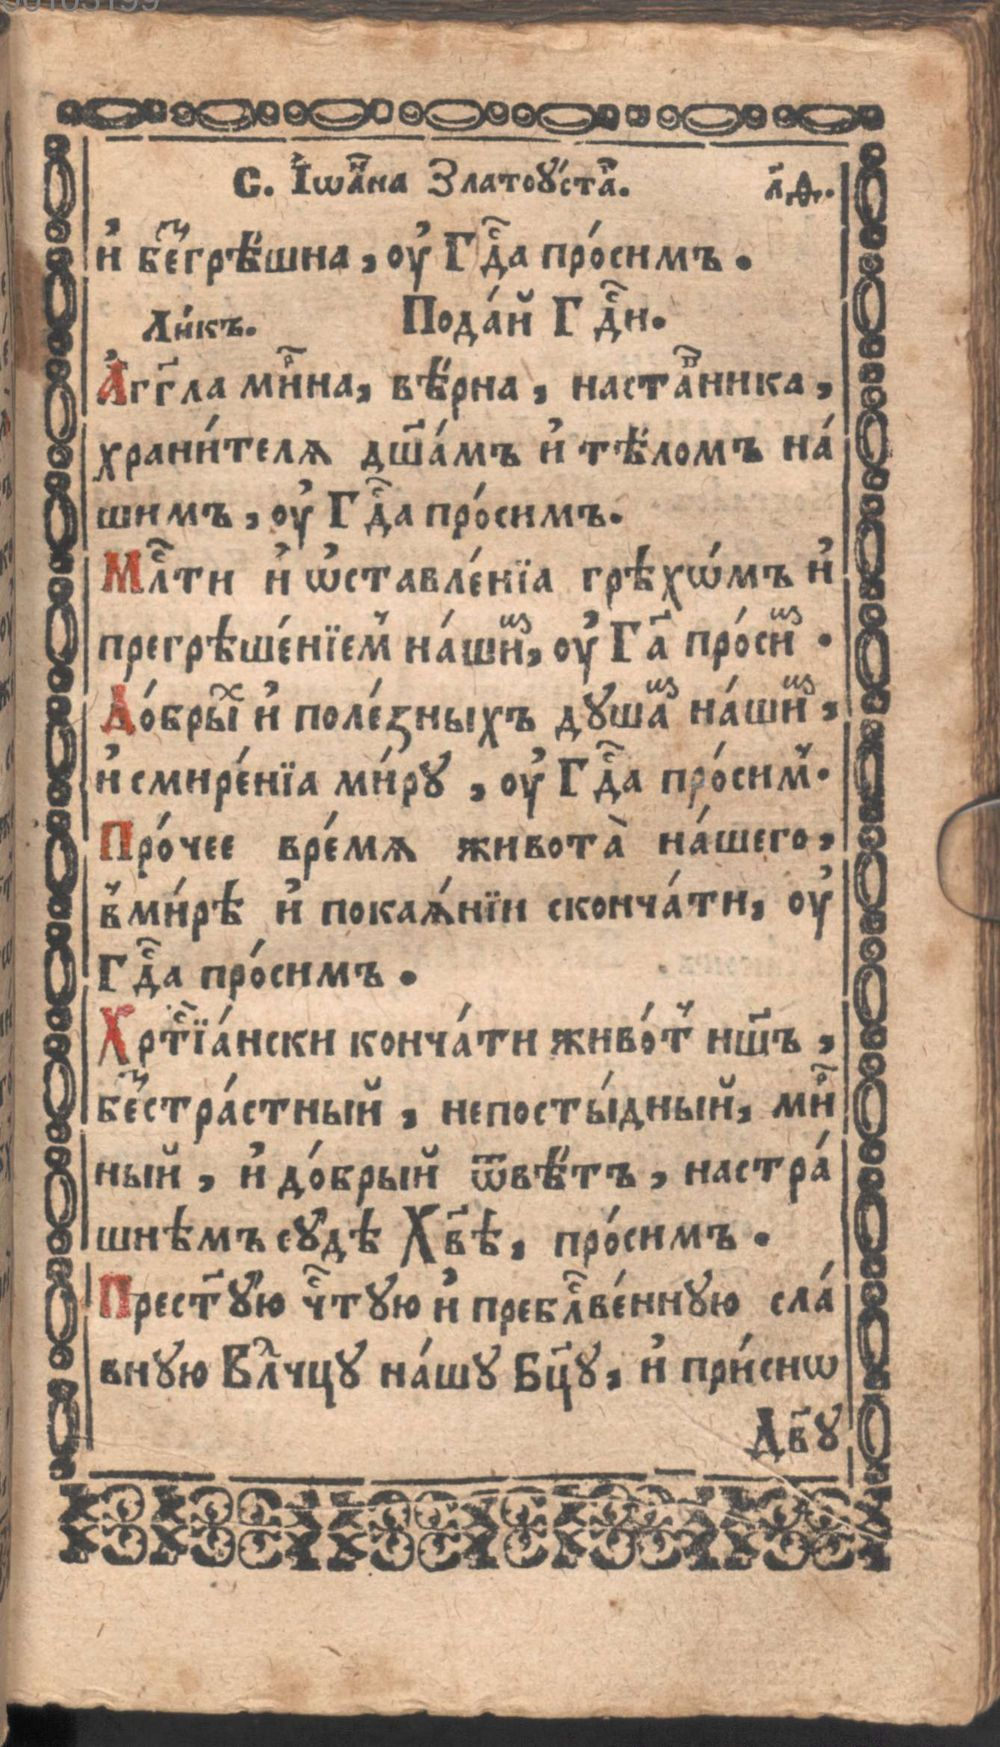 С. І҆ѡа́нна Златоꙋ́стаⷢ҇. л҃ѳ.
и҆ бе́гⷥрѣ́шна, ѹ҆ Гдⷭ҇а про́симъ.
Ли́къ. Пода́й Гдⷭ҇и.
А҆гг҃ла ми́рⷬ҇на, вѣ́рна, наста́вⷡ҇ника,
храни́телѧ дш҃а́мъ и҆ тѣло́мъ на́
шимъ, ѹ҆ Гдⷭ҇а про́симъ.
Млⷭ҇ти и҆ ѡ҆ставле́нїа грѣхѡ́мъ и҆
прегрѣше́нїемⸯ на́шиⷨ, ѹ҆ Гⷭ҇а про́сиⷨ.
До́брыⷯ и҆ поле́ꙁныхъ дꙋшаⷨ на́шиⷨ,
и҆ смире́нїа ми́рꙋ, ѹ҆ Гдⷭ҇а про́симⸯ.
Про́чее вре́мѧ живота̀ на́шего,
вⸯми́рѣ и҆ покаѧ́нїи сконча́ти, ѹ҆
Гдⷭ҇а про́симъ.
Хртⷭ҇їа́нски конча́ти живо́тⸯ нш҃ъ,
беⷥстра́стный, непосты́дный, миⷬ҇
ный, и҆ до́брый ѿвѣ́тъ, настра́
шнѣмъ сꙋ́дѣ Хв҃ѣ, про́симъ.
Прест҃ꙋ́ю чⷭ҇тꙋю и҆ преблⷭ҇ве́ннꙋю сла́
внꙋю Влⷣчцꙋ на́шꙋ Бц҃ꙋ, и҆ при́снѡ
Дв҃ꙋ